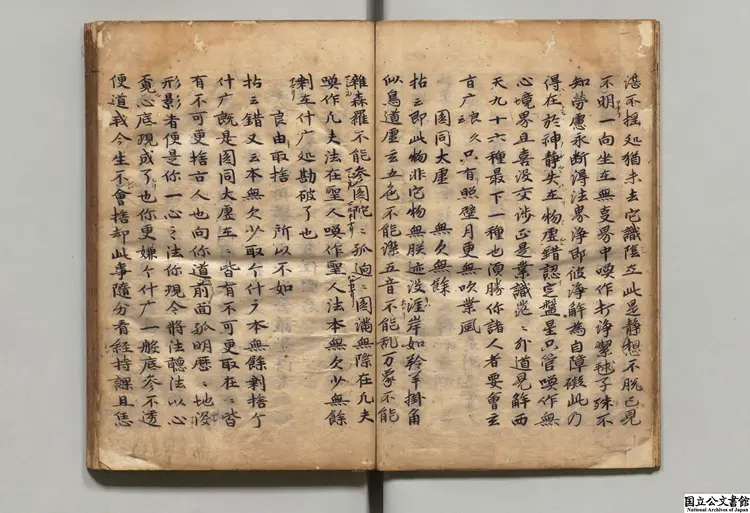 湛不揺処猶未去它識陰立此是静想不脱己見
不明一向坐在無事界中喚作打浄潔毬子殊不
知劳慮永断得法界浄即彼浄解為自障礙此乃
得在於神静失在物虚錯認定盤星只管喚作無
心境界且喜没交渉正是業識茫〻外道見解西
天九十六種最下一種也須勝你諸人者要會玄
旨广良久只有照壁月更無吹葉風
圎同太虚 無欠無餘
拈云即此物非它物無朕迹没涯岸如羚羊掛角
似鳥道虚玄五色不能染五音不能乱万象不能
雜森羅不能参圎陀〻孤逈〻圎満無際在凡夫
喚作凡夫法在聖人喚作聖人法本無欠少無餘
剰在什广処勘破了也
良由取捨 所以不如
拈云錯又云本無欠少取个什广本無餘剰捨个
什广既是圎同太虚在〻皆有不可更取在〻皆
有不可更捨古人也向你道前面孤明歴〻地没
形影者便是你一心之法你現今将法聴法以心
覓心底現成了也你更嫌个什广一般底参不透
便道我今生不會捨却此事随分看経持課且恁
国立公文書館
National Archives of Japan